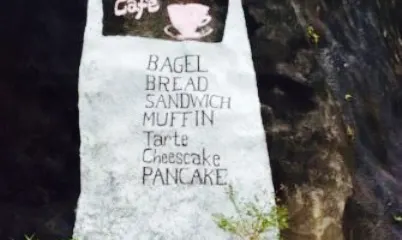 Café
BAGEL
BREAD
SANDWICH
MUFFIN
Tarte
Cheescake
PANCAKE